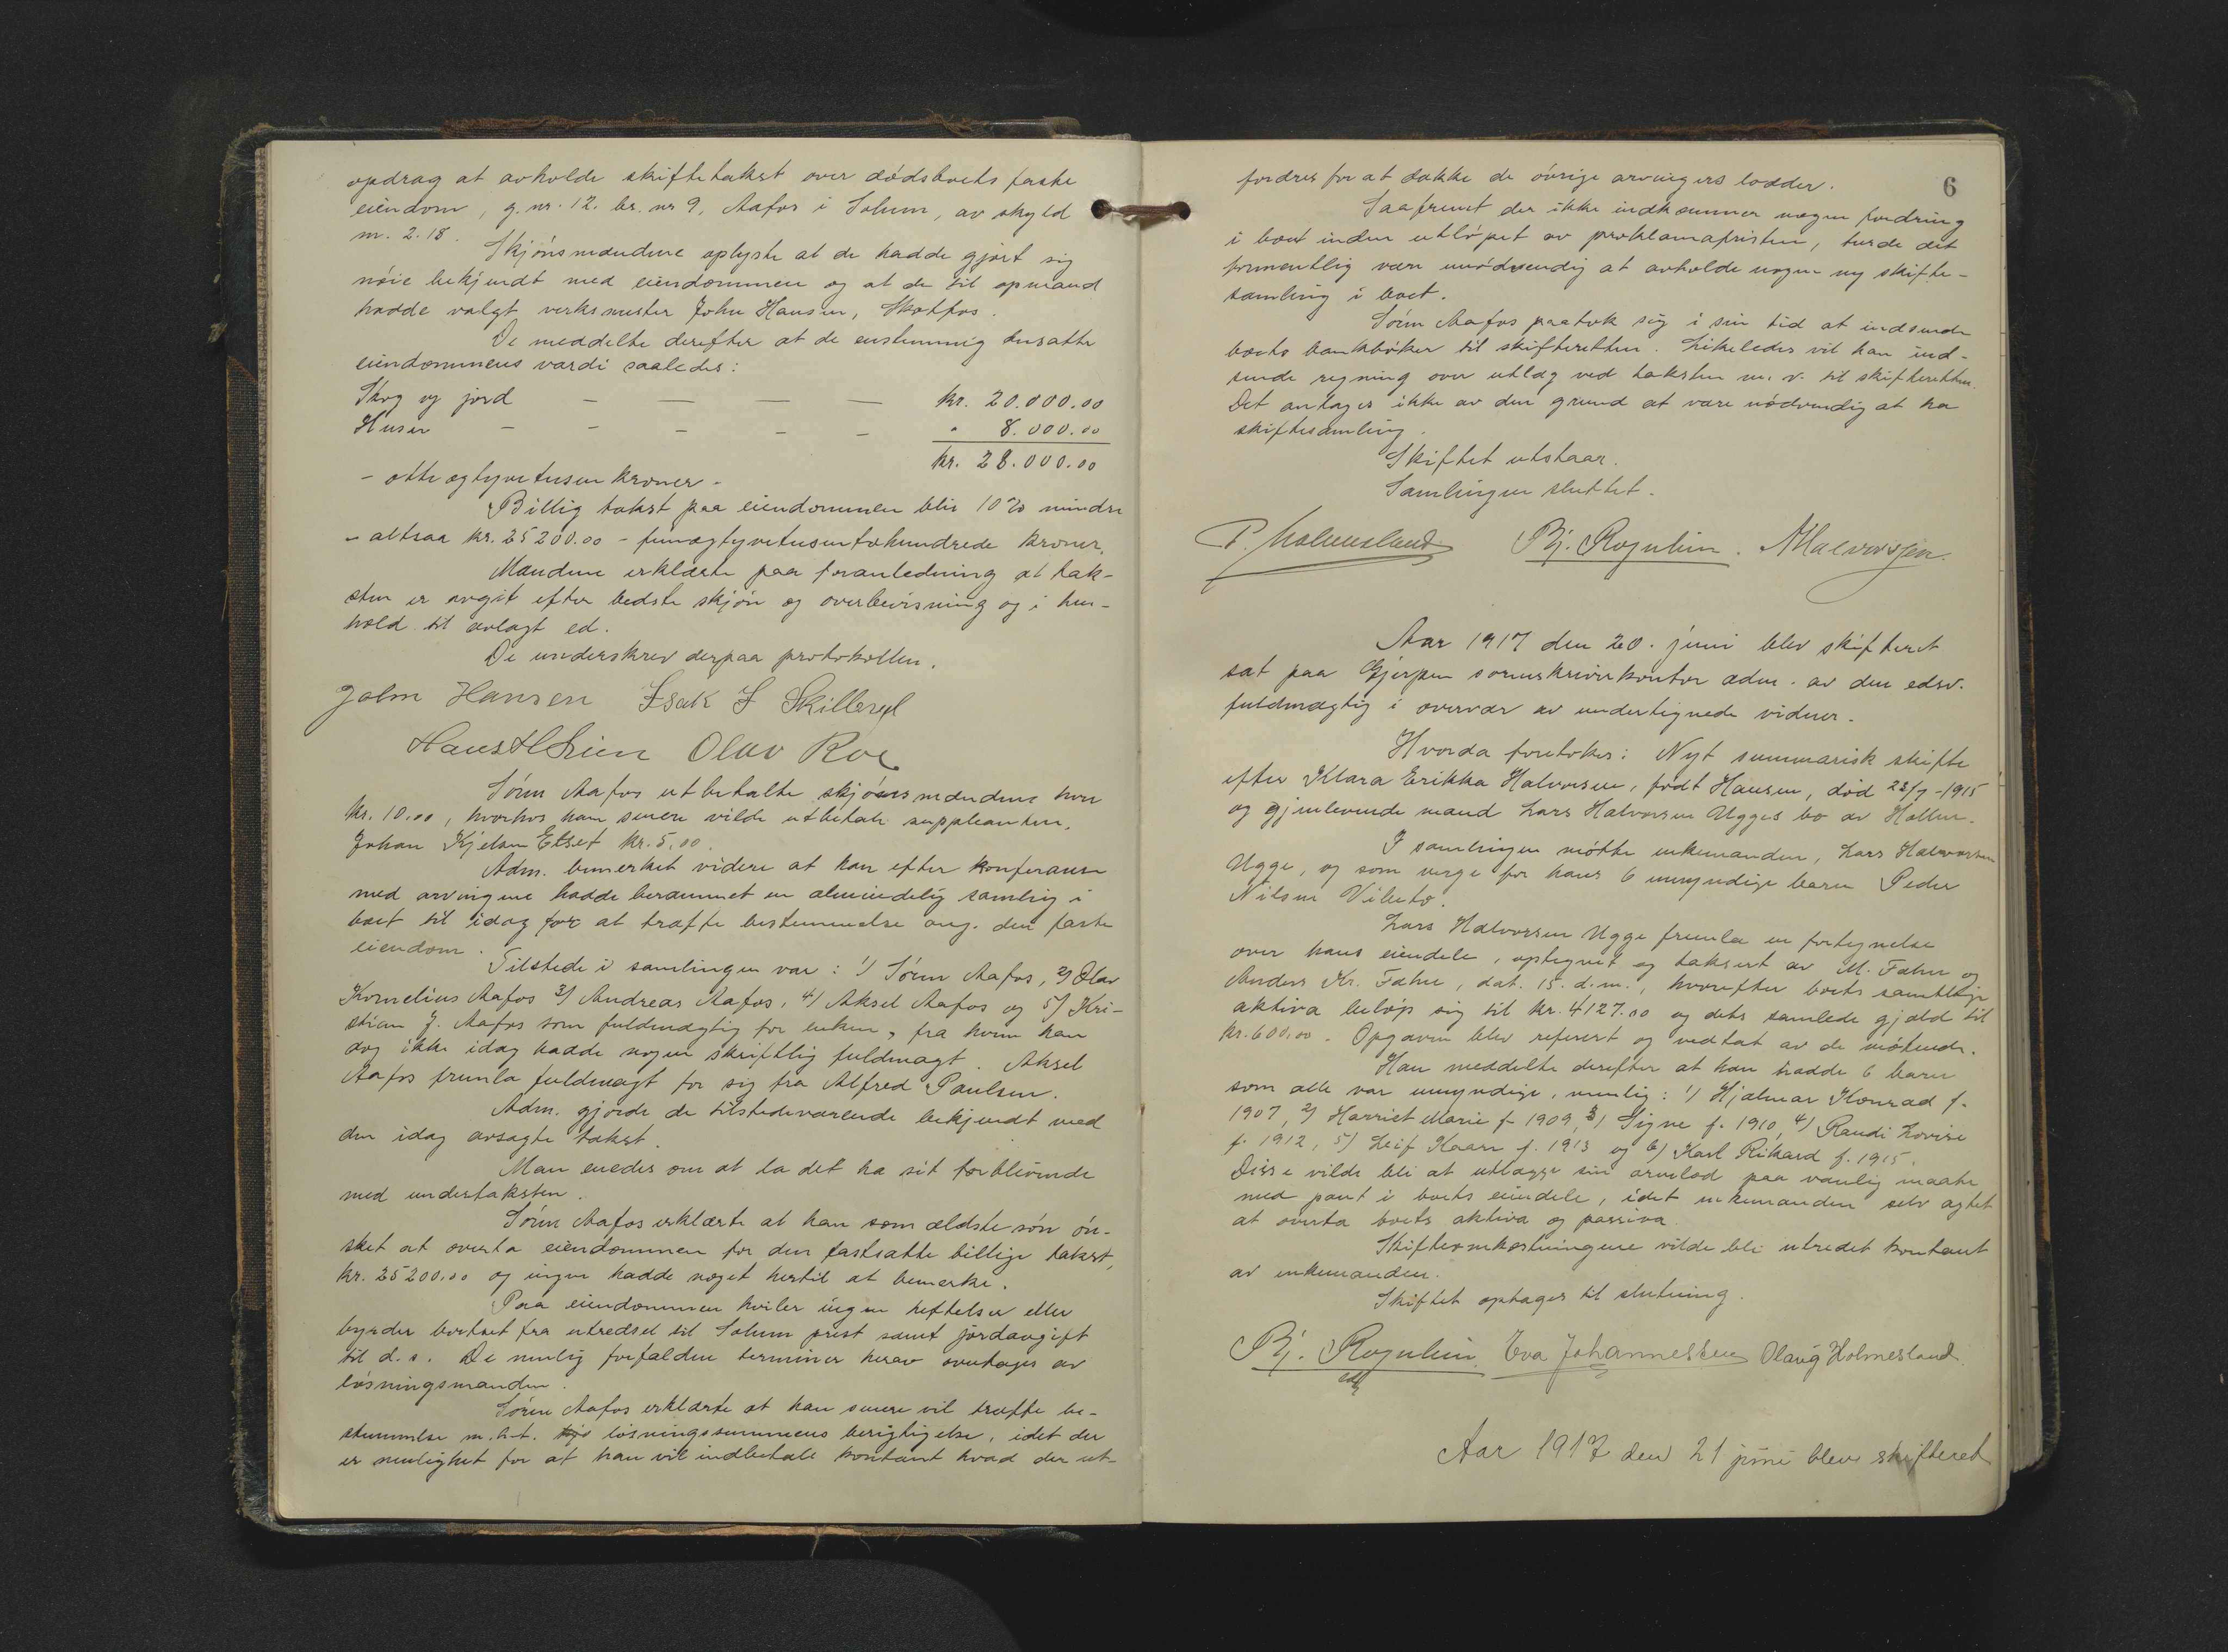 opdrag at avholde skiftetakst over dødsboets faste
eiendom, g. nr. 12. br. nr 9, Aafos i Solum, av skyld
m. 2.18.
Skjønsmændene oplyste at de hadde gjort sig
nøie bekjendt med eiendommen og at de til opmand
hadde valgt verksmester John Hansen, Skotfos.
De meddelte derefter at de enstemmig ansatte
eiendommens værdi saaledes:
Skog og jord — — — — kr. 20.000.00
Huser - - - - - " 8.000.00
kr. 28.000.00
- otte og tyvetusen kroner -
Billig takst paa eiendommen blir 10% mindre
- altsaa kr. 25200.00 - femogtyvetusentohundrede kroner.
Mændene erklærte paa foranledning at tak-
sten er avgit efter bedste skjøn og overbevisning og i hen-
hold til avlagt ed.
De underskrev derpaa protokollen.
John Hansen Isak I Skilbred
Hans H Lien Olav Roe
Søren Aafos utbetalte skjønsmændene hver
kr. 10.00, hvorhos han senere vilde utbetale suppleanten,
Johan Kjelsen Etset kr. 5.00.
Adm. bemerket videre at han efter konferanse
med arvingene hadde berammet en almindelig samling i
boet til idag for at træffe bestemmelse ang. den faste
eiendom.
Tilstede i samlingen var: 1) Søren Aafos, 2) Olav
Kornelius Aafos 3) Andreas Aafos, 4) Aksel Aafos og 5) Kri-
stian J. Aafos som fuldmægtig for enken, fra hvem han
dog ikke idag hadde nogen skriftlig fuldmagt. Aksel
Aafos fremla fuldmagt for sig fra Alfred Paulsen.
Adm. gjorde de tilstedeværende bekjendt med
den idag avsagte takst.
Man enedes om at la det ha sit forblivende
med undertaksten.
Søren Aafos erklærte at han som ældste søn øn-
sket at overta eiendommen for den fastsatte billige takst,
kr. 25200.00 og ingen hadde noget hertil at bemerke.
Paa eiendommen hviler ingen heftelser eller
byrder bortset fra utredsel til Solum prest samt jordavgift
til d.s. De mulig forfaldne terminer herav overtages av
løsningsmanden.
Søren Aafos erklærte at han senere vil træffe be-
stemmelse m.h.t. løsningssummens berigtigelse, idet der
er mulighet for at han vil indbetale kontant hvad der ut-
6
fordres for at dække de øvrige arvingers lodder.
Saafremt der ikke indkommer nogen fordring
i boet inden utløpet av proklamafristen, turde det
formentlig være unødvendig at avholde nogen ny skifte-
samling i boet.
Søren Aafos paatok sig i sin tid at indsende
boets bankbøker til skifteretten. Likeledes vil han ind-
sende regning over utlæg ved taksten m.v. til skifteretten.
Det antages ikke av den grund at være nødvendig at ha
skiftesamling.
Skiftet utstaar.
Samlingen sluttet.
P. Holmesland Bj. Rognlien. A Halvorsen.
Aar 1917 den 20. juni blev skifteret
sat paa Gjerpen sorenskriverkontor adm. av den edsv.
fuldmægtig i overvær av undertegnede vidner.
Hvorda foretokes: Nyt summarisk skifte
efter Klara Erikka Halvorsen, født Hansen, død 23/7-1915
og gjenlevende mand Lars Halvorsen Ugges bo av Hollen.
I samlingen møtte enkemanden, Lars Halvorsen
Ugge, og som verge for hans 6 umyndige barn Peder
Nilsen Vibeto.
Lars Halvorsen Ugge fremla en fortegnelse
over hans eiendele, optegnet og taksert av M. Fahre og
Anders Kr. Fahre, dat. 15. d.m., hvorefter boets samtlige
aktiva beløp sig til kr. 4127.00 og dets samlede gjæld til
kr. 600.00. Opgaven blev referert og vedtat av de møtende.
Han meddelte derefter at han hadde 6 barn
som alle var umyndige, nemlig: 1) Hjalmar Konrad f.
1907, 2) Harriet Marie f. 1909, 3) Signe f. 1910, 4) Randi Lovise
f. 1912, 5) Leif Kaare f. 1913 og 6) Karl Rikard f. 1915.
Disse vilde bli at utlægge sin arvelod paa vanlig maate
med pant i boets eiendele, idet enkemanden selv agtet
at overta boets aktiva og passiva.
Skifteomkostningene vilde bli utredet kontant
av enkemanden.
Skiftet optages til slutning.
Bj. Rognlien Eva Johannessen Olaug Holmesland.
Aar 1917 den 21 juni blev skifteret